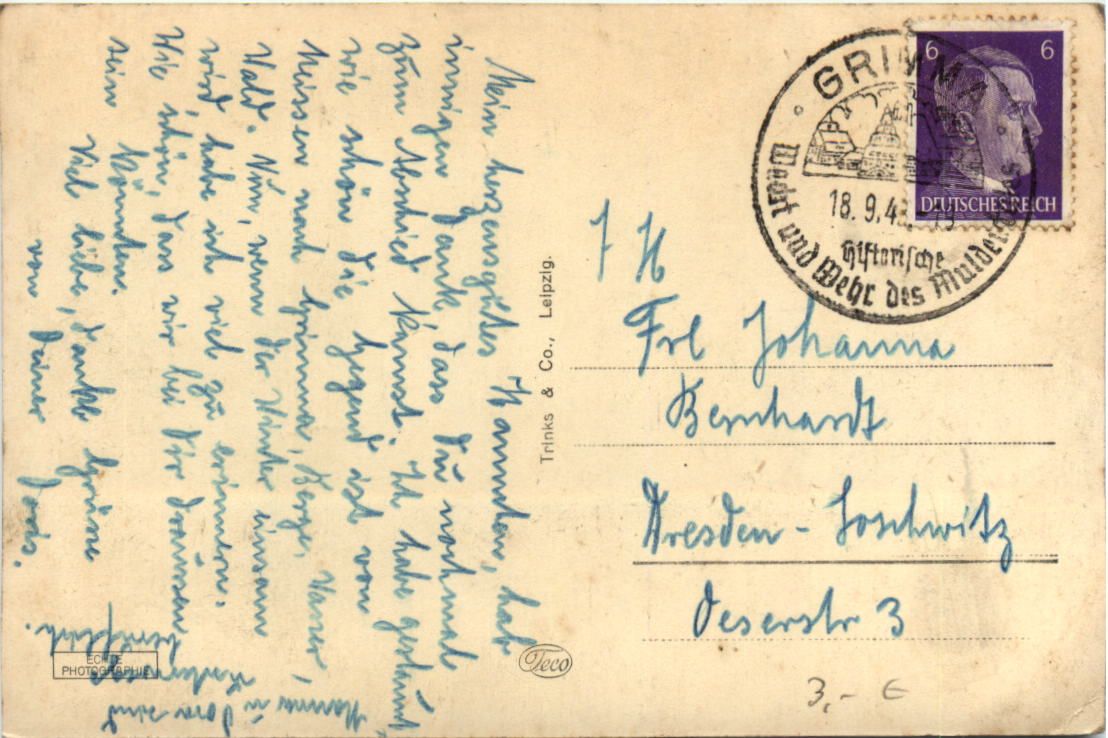 Mein herzensgutes Hannchen, hab
innigen Dank, dass Du nochmal
zum Abschied kamst. Ich habe gestaunt
wie schön die Gegend ist von
Meissen nach Grimma, Berge, Wasser,
Wald. Nun, wenn der Winter einsam
wird habe ich viel zu erinnern.
Wie schön, das wir bei Dir draussen
sein könnten.
Viel liebe, Grüsse
von Deiner Doris.
sind
beruflich.
ECHTE
PHOTOGRAPHIE
Trinks & Co., Leipzig.
Teco
6 6
DEUTSCHES REICH
GRIMMA
18.9.43
historische
Stadt und Wehr des
7 H
Frl Johanna
Bernhardt
Dresden - Loschwitz
Oeserstr 3
3,- €